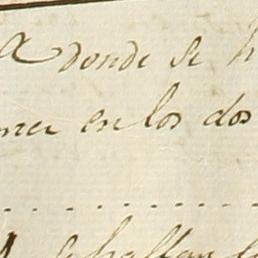 A donde se h
en los dos
se hallan